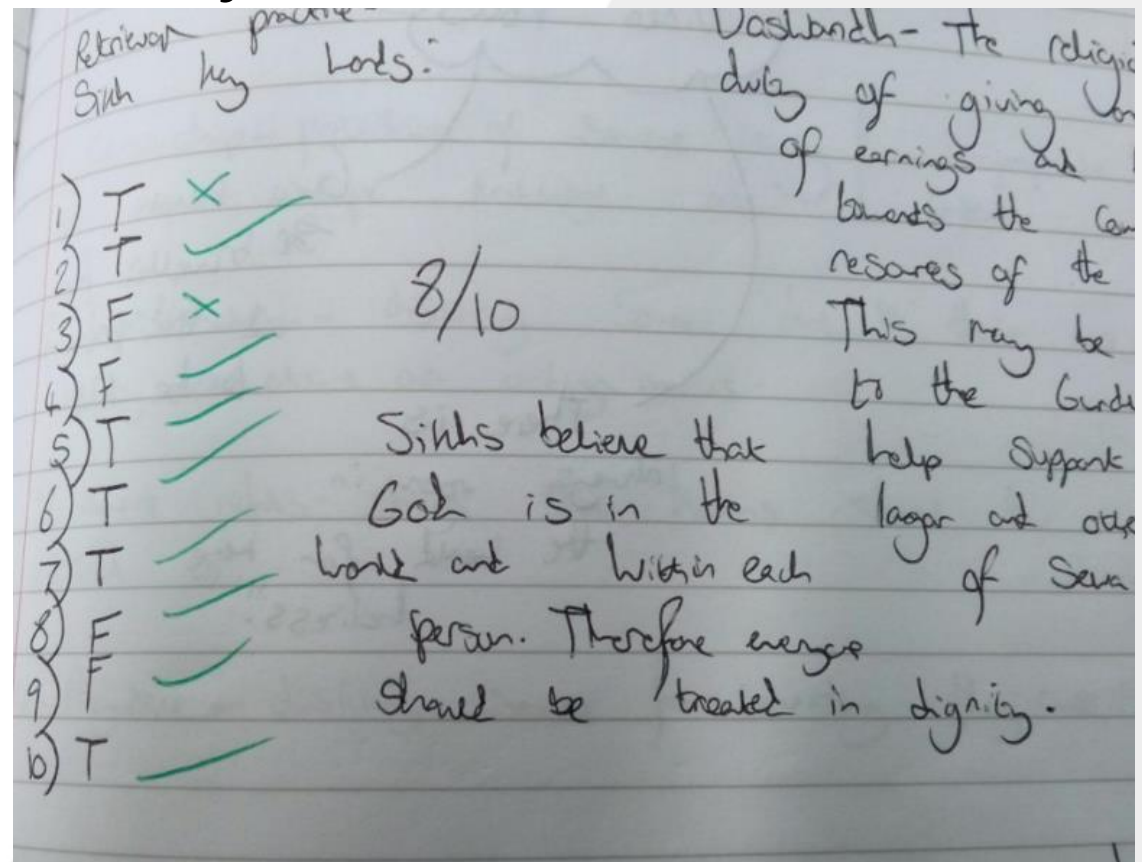 Retrieval practice-
Sikh key words:
1) T ×
2) T ✓
3) F ×
4) F ✓
5) T ✓
6) T ✓
7) T ✓
8) F ✓
9) F ✓
10) T ✓
8/10
Sikhs believe that
God is in the
world and within each
person. Therefore everyone
should be treated in dignity.
Dasvandh- The
duty of giving
of earnings and
towards the
resores of the
This may be
to the
help support
lagar and
of Sewa